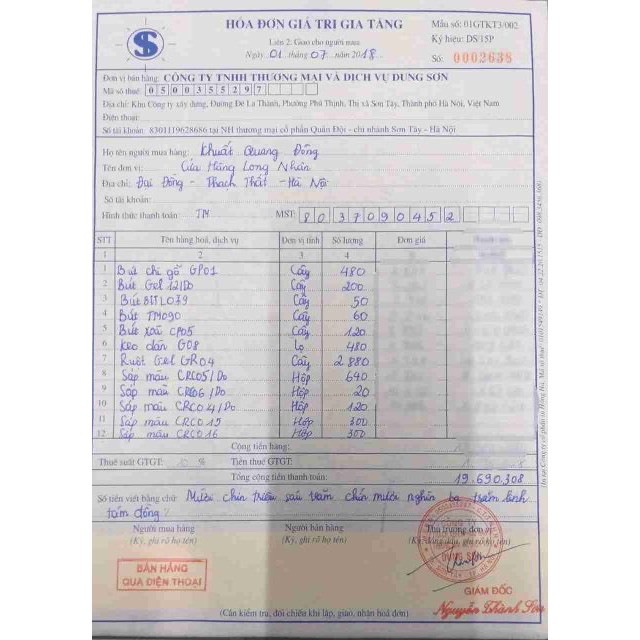 HÓA ĐƠN GIÁ TRỊ GIA TĂNG
Liên 2: Giao cho người mua
Ngày 01 tháng 07 năm 2018
Mẫu số: 01GTKT3/002
Ký hiệu: DS/15P
Số: 0002638
S
Đơn vị bán hàng: CÔNG TY TNHH THƯƠNG MẠI VÀ DỊCH VỤ DUNG SƠN
Mã số thuế: 0500355297
Địa chỉ: Khu Công ty xây dựng, Đường Đê La Thành, Phường Phú Thịnh, Thị xã Sơn Tây, Thành phố Hà Nội, Việt Nam
Điện thoại:
Số tài khoản: 8301119628686 tại NH thương mại cổ phần Quân Đội - chi nhánh Sơn Tây - Hà Nội
Họ tên người mua hàng: Khuất Quang Đồng
Tên đơn vị: Cửa Hàng Long Nhân
Địa chỉ: Đại Đồng - Thạch Thất - Hà Nội
Số tài khoản:
Hình thức thanh toán: TM MST: 8037090452
STT Tên hàng hoá, dịch vụ Đơn vị tính Số lượng Đơn giá
1 2 3 4
1 Bút chì gỗ GP01 Cây 480
2 Bút Gel 12/Do Cây 200
3 Bút BTL079 Cây 50
4 Bút TM090 Cây 60
5 Bút xoá CP05 Cây 120
6 Keo dán G08 Lọ 480
7 Ruột Gel GR04 Cây 2 880
8 Sáp màu CRC05/Do Hộp 640
9 Sáp màu CRC06/Do Hộp 20
10 Sáp màu CRC04/Do Hộp 120
11 Sáp màu CRC015 Hộp 300
12 Sáp màu CRC016 Hộp 300
Cộng tiền hàng:
Thuế suất GTGT: 10 % Tiền thuế GTGT:
Tổng cộng tiền thanh toán: 19.690.308
Số tiền viết bằng chữ: Mười chín triệu sáu trăm chín mươi nghìn ba trăm linh
tám đồng.
Người mua hàng Người bán hàng Thủ trưởng đơn vị
(Ký, ghi rõ họ tên) (Ký, ghi rõ họ tên) (Ký, đóng dấu, ghi rõ họ tên)
BÁN HÀNG
QUA ĐIỆN THOẠI
DUNG SƠN
GIÁM ĐỐC
Nguyễn Thành Sơn
(Cần kiểm tra, đối chiếu khi lập, giao, nhận hoá đơn)